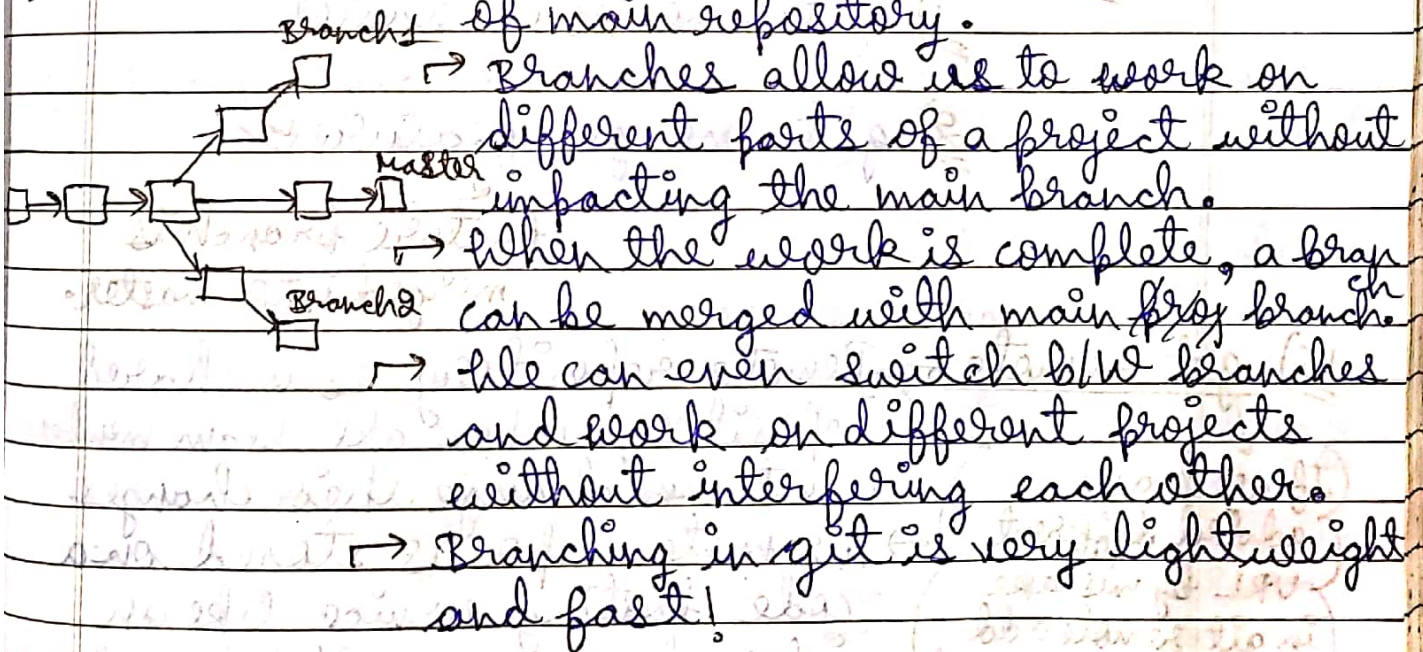 of main repository.
Branch1
↱ Branches allow us to work on
different parts of a project without
Master
impacting the main branch.
↱ When the work is complete, a bran
ch
Branch2
can be merged with main proj branch.
↱ We can even switch b/W branches
and work on different projects
without interfering each other.
↱ Branching in git is very lightweight
and fast!